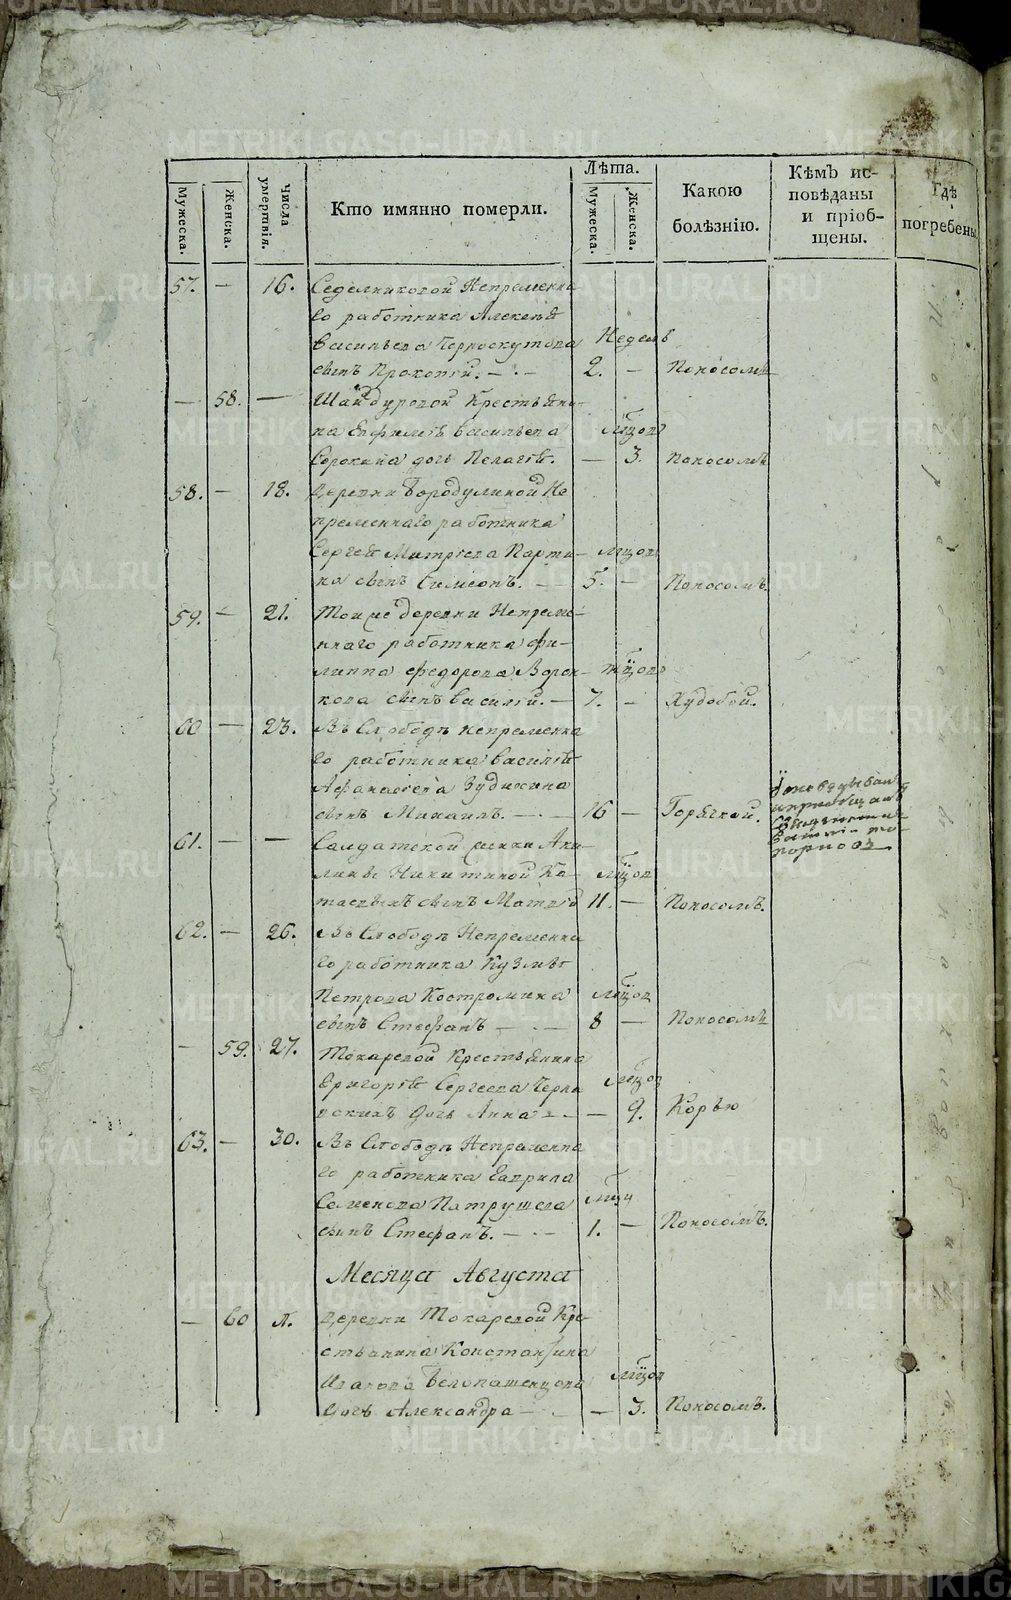 Мужеска.
Женска.
Числа умертвія.
Кто имянно померли.
Лѣта.
Мужеска.
Женска.
Какою болѣзнію.
Кѣмъ исповѣданы и пріобщены.
Гдѣ погребены
57. — 16. Седелниковой Непременна
го работника Алексѣя
Васильева Черноскутова Недель
сынъ Прокопій. — 2. — Поносомъ
— 58. — Шайдуровой Крестьяни-
на Евфима Васильева мѣсяцов
Сорокина дочь Пелагѣя. — 3. Поносомъ
58. — 18. Деревни Бородулиной Не
пременнаго работника
Сергѣя Митрева Парти- мѣсяцов
на сынъ Симеонъ. — 5. — Поносомъ.
59. — 21. Тоиже деревни Непреме-
ннаго работника Фи-
липпа Федорова Ворон- мѣсяцов
кова сынъ Василій. — 7. — Худобой.
60 — 23. Въ Слободѣ непременна
го работника Василья
Афанасьева Зудихина
сынъ Михаилъ. — 16 — Горячкой.
61. — — Салдатской женки Аку-
лины Никитиной Ка- мѣсяцов
таевыхъ сынъ Матвѣй 11. — Поносомъ.
62. — 26. Въ Слободѣ Непременна
го работника Кузмы
Петрова Костромина мѣсяцов
сынъ Стефанъ — 8 — Поносомъ
— 59. 27. Токаревой Крестьянина
Григорья Сергеева Черно мѣсяцов
дочь Анна — — 9. Корью
63. — 30. Въ Слободѣ Непременна
го работника Гаврила
Семенова Патрушева мѣсяц
сынъ Стефанъ. — 1. — Поносомъ.
Месяца Августа
— 60 Деревни Токаревой Кре-
стьянина Константина
Иванова Белопашенцова мѣсяцов
дочь Александра — — 3. Поносомъ.
METRIKI.GASO-URAL.RU